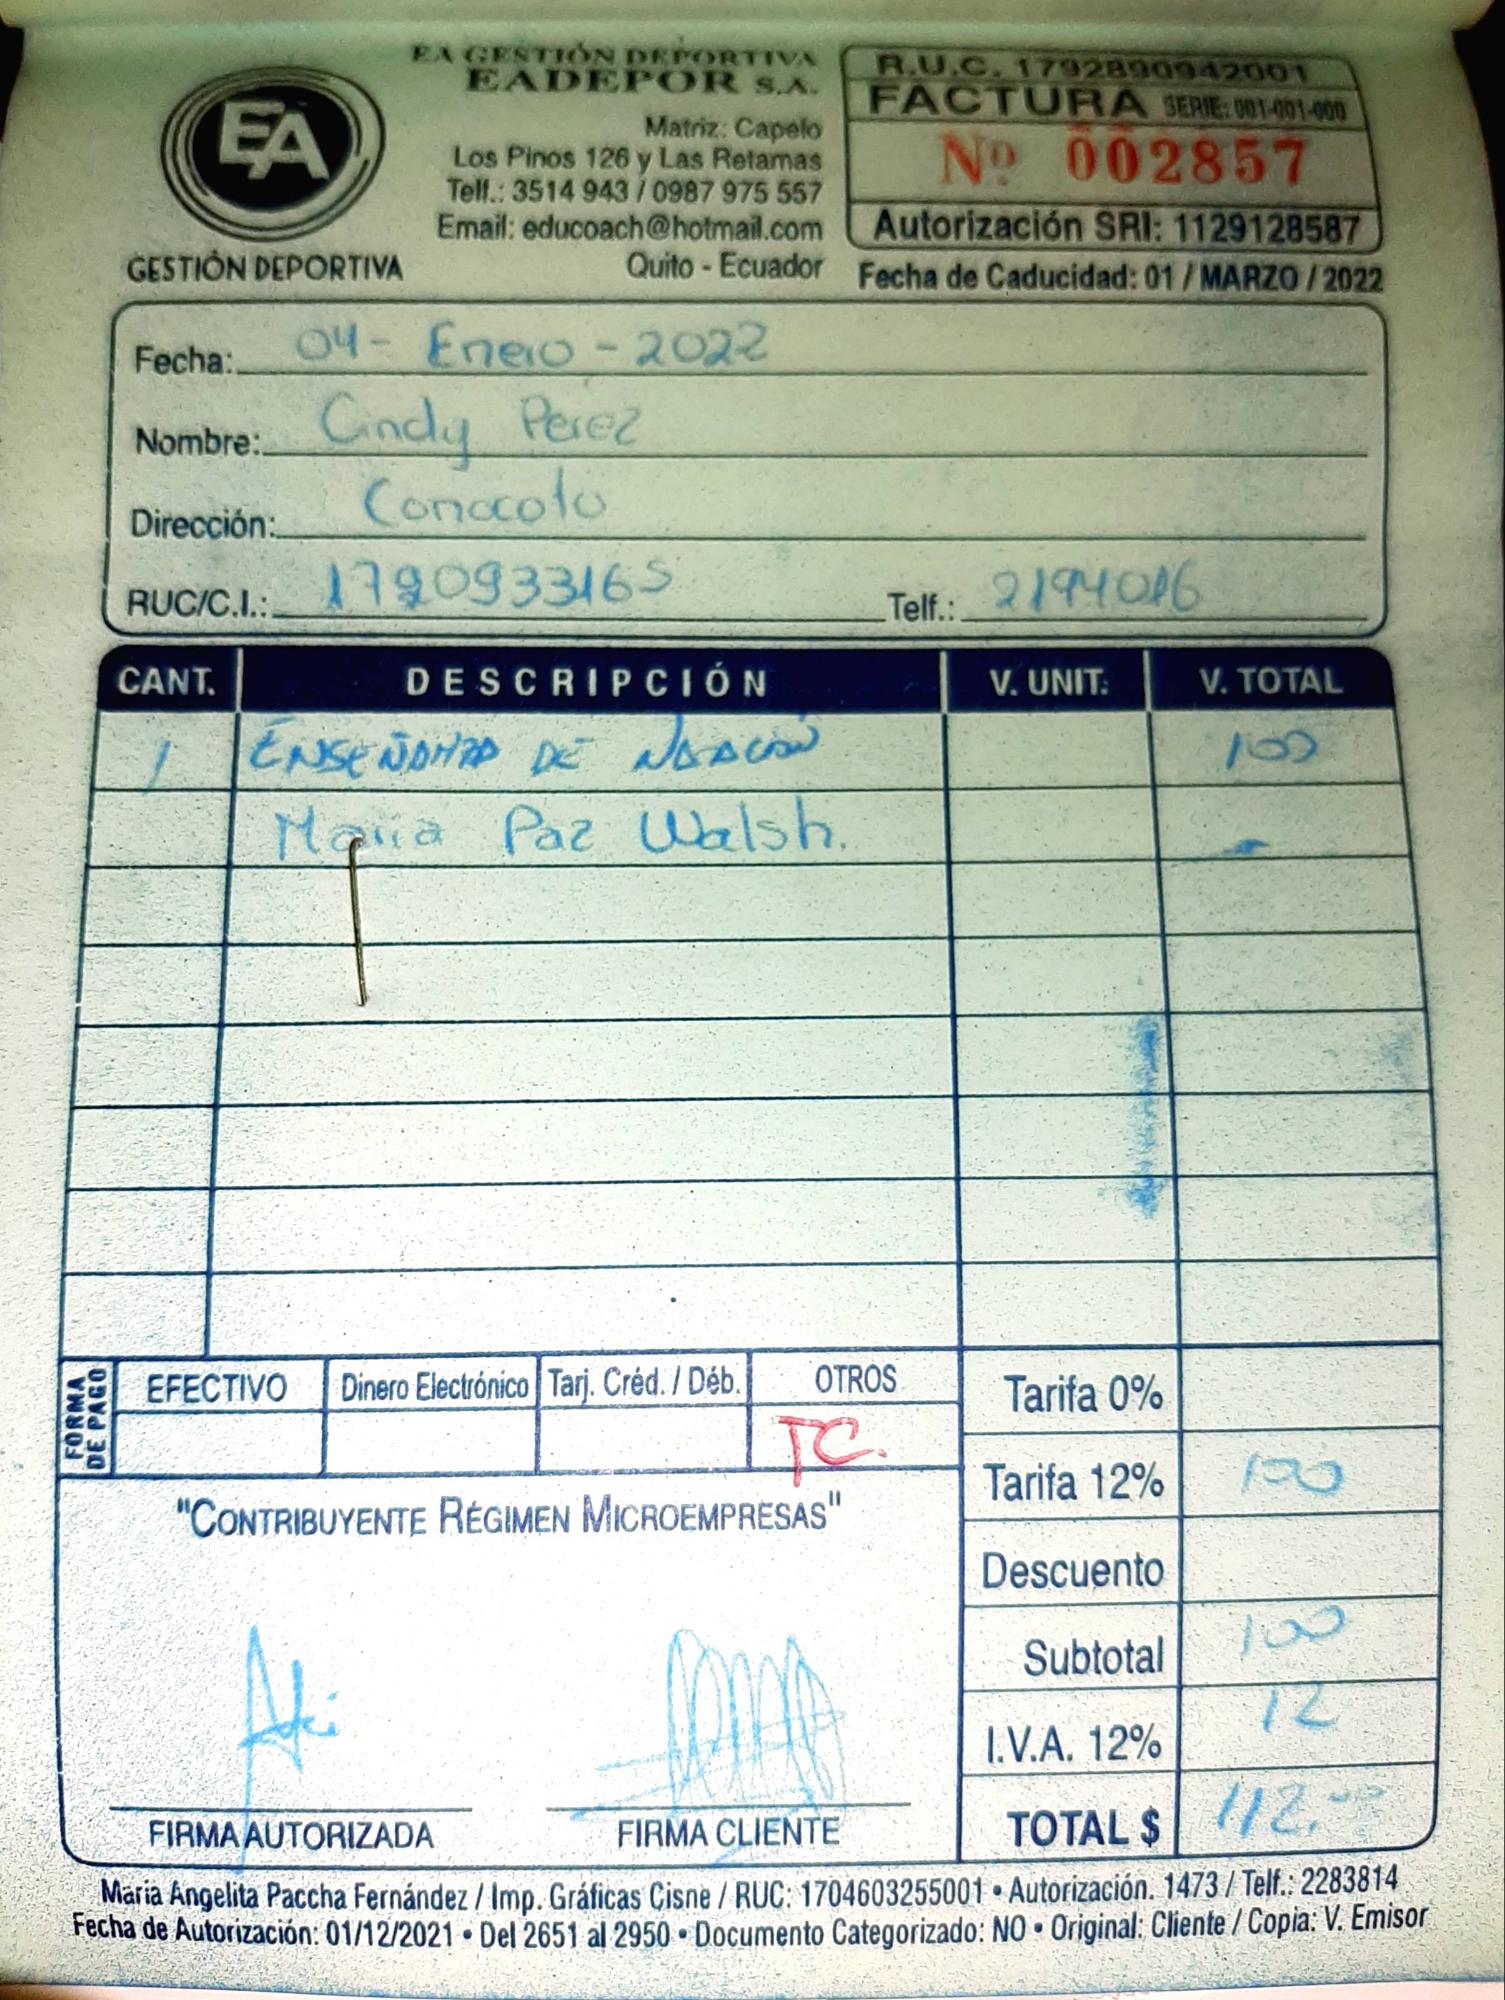 EA GESTIÓN DEPORTIVA
EADEPOR S.A.
EA
GESTIÓN DEPORTIVA
Matriz: Capelo
Los Pinos 126 y Las Retamas
Telf.: 3514 943 / 0987 975 557
Email: educoach@hotmail.com
Quito - Ecuador
R.U.C. 1792890942001
FACTURA SERIE: 001-001-000
Nº 002857
Autorización SRI: 1129128587
Fecha de Caducidad: 01 / MARZO / 2022
Fecha: 04 - Enero - 2022
Nombre: Cindy Perez
Dirección: Conocoto
RUC/C.I.: Telf.: 2194016
CANT. DESCRIPCIÓN V. UNIT. V. TOTAL
1 ENSEÑANZA DE 100
Maria Paz Walsh.
FORMA DE PAGO
EFECTIVO Dinero Electrónico Tarj. Créd. / Déb. OTROS
TC.
Tarifa 0%
Tarifa 12% 100
Descuento
Subtotal 100
I.V.A. 12% 12
TOTAL $ 112.--
"CONTRIBUYENTE RÉGIMEN MICROEMPRESAS"
FIRMA AUTORIZADA FIRMA CLIENTE
Maria Angelita Paccha Fernández / Imp. Gráficas Cisne / RUC: 1704603255001 • Autorización. 1473 / Telf.: 2283814
Fecha de Autorización: 01/12/2021 • Del 2651 al 2950 • Documento Categorizado: NO • Original: Cliente / Copia: V. Emisor